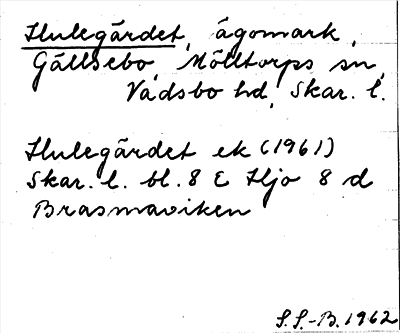 Hulegärdet, ägomark,
Gällsebo, Mölltorps sn,
Vadsbo hd, Skar. l.
Hulegärdet ek (1961)
Skar. l. bl. 8 E Hjo 8 d
Brasmaviken
S.S.-B. 1962